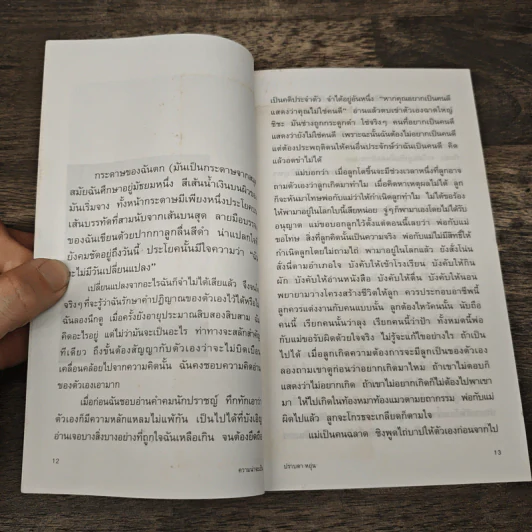 กระดาษของฉันตก (มันเป็นกระดาษจากสมุด
สมัยฉันศึกษาอยู่มัธยมหนึ่ง สีเส้นน้ำเงินบนผิว
มันเริ่มจาง ทั้งหน้ากระดาษมีเพียงหนึ่งประโยค
เส้นบรรทัดที่สามนับจากเส้นบนสุด ลายมือบรรจง
ของฉันเขียนด้วยปากกาลูกลื่นสีดำ น่าแปลก
ยังคมชัดอยู่ถึงวันนี้ ประโยคนั้นมีใจความว่า
จะไม่มีวันเปลี่ยนแปลง"
เปลี่ยนแปลงจากอะไรฉันก็จำไม่ได้เสียแล้ว จึง
จริงๆที่จะรู้ว่าฉันรักษาคำปฏิญาณของตัวเองไว้ได้หรือ
ฉันลองนึกดู เมื่อครั้งยังอายุประมาณสิบสองสิบสาม
คิดอะไรอยู่ แต่ไม่ว่ามันจะเป็นอะไร ท่าทางจะสลักสำคัญ
ทีเดียว ถึงขั้นต้องสัญญากับตัวเองว่าจะไม่บิดเบือน
เคลื่อนคล้อยไปจากความคิดนั้น ฉันคงชอบความคิดอ่าน
ของตัวเองเอามาก
เมื่อก่อนฉันชอบอ่านคำคมนักปราชญ์ ทึกทักเอาว่า
ตัวเองก็มีความหลักแหลมไม่แพ้กัน เป็นไปได้ที่บังเอิญ
อ่านเจอบางสิ่งบางอย่างที่ถูกใจฉันเหลือเกิน จนต้องยึดถือ
12
ความน่าจะเป็น
เป็นคติประจำตัว จำได้อยู่อันหนึ่ง "หากคุณอยากเป็นคนดี
แสดงว่าคุณไม่ใช่คนดี" อ่านแล้วตบเข่าตัวเองฉาดใหญ่
ชิชะ มันช่างถูกกระดูกดำ ใช่จริงๆ คนที่อยากเป็นคนดี
แสดงว่ายังไม่ใช่คนดี เพราะฉะนั้นฉันต้องไม่อยากเป็นคนดี
แต่ต้องประพฤติตนให้คนอื่นประจักษ์ว่าฉันเป็นคนดี คิด
แล้วอดขำไม่ได้
แม่บอกว่า เมื่อลูกโตขึ้นจะมีช่วงเวลาหนึ่งที่ลูกอาจ
ถามตัวเองว่าลูกเกิดมาทำไม เมื่อคิดหาเหตุผลไม่ได้ ลูก
ก็จะหันมาโทษพ่อกับแม่ว่าทำให้ลูกเกิดทำไม ไม่ได้ขอร้อง
ให้พามาอยู่ในโลกใบนี้เสียหน่อย จู่ๆก็พามาเองโดยไม่ได้รับ
อนุญาต แม่ขอบอกลูกไว้ตั้งแต่ตอนนี้เลยว่า พ่อกับแม่
ขอโทษ สิ่งที่ลูกคิดนั้นเป็นความจริง พ่อกับแม่ไม่มีสิทธิ์ให้
กำเนิดลูกโดยไม่ถามไถ่ พามาอยู่ในโลกแล้ว ยังสั่งโน่น
สั่งนี่ตามอำเภอใจ บังคับให้เข้าโรงเรียน บังคับให้กินผัก
บังคับให้อ่านหนังสือ บังคับให้ตื่น บังคับให้นอน
พยายามวางโครงสร้างชีวิตให้ลูก ควรประกอบอาชีพนี้
ลูกควรแต่งงานกับคนแบบนั้น ลูกต้องไหว้คนนั้น นับถือ
คนนี้ เรียกคนนั้นว่าลุง เรียกคนนี้ว่าป้า ทั้งหมดนี้พ่อ
กับแม่ขอรับผิดด้วยใจจริง ไม่รู้จะแก้ไขอย่างไร ถ้าเป็น
ไปได้ เมื่อลูกเกิดความต้องการจะมีลูกเป็นของตัวเอง
ลองถามเขาดูก่อนว่าอยากเกิดมาไหม ถ้าเขาไม่ตอบก็
แสดงว่าไม่อยากเกิด ถ้าเขาไม่อยากเกิดก็ไม่ต้องไปพาเขา
มา ให้ไปเกิดในท้องหมาท้องแมวตามยถากรรม พ่อกับแม่
ผิดไปแล้ว ลูกจะโกรธจะเกลียดก็ตามใจ
แม่เป็นคนฉลาด ชิงพูดไถ่บาปให้ตัวเองก่อนจากไป
13
ปราบดา หยุ่น